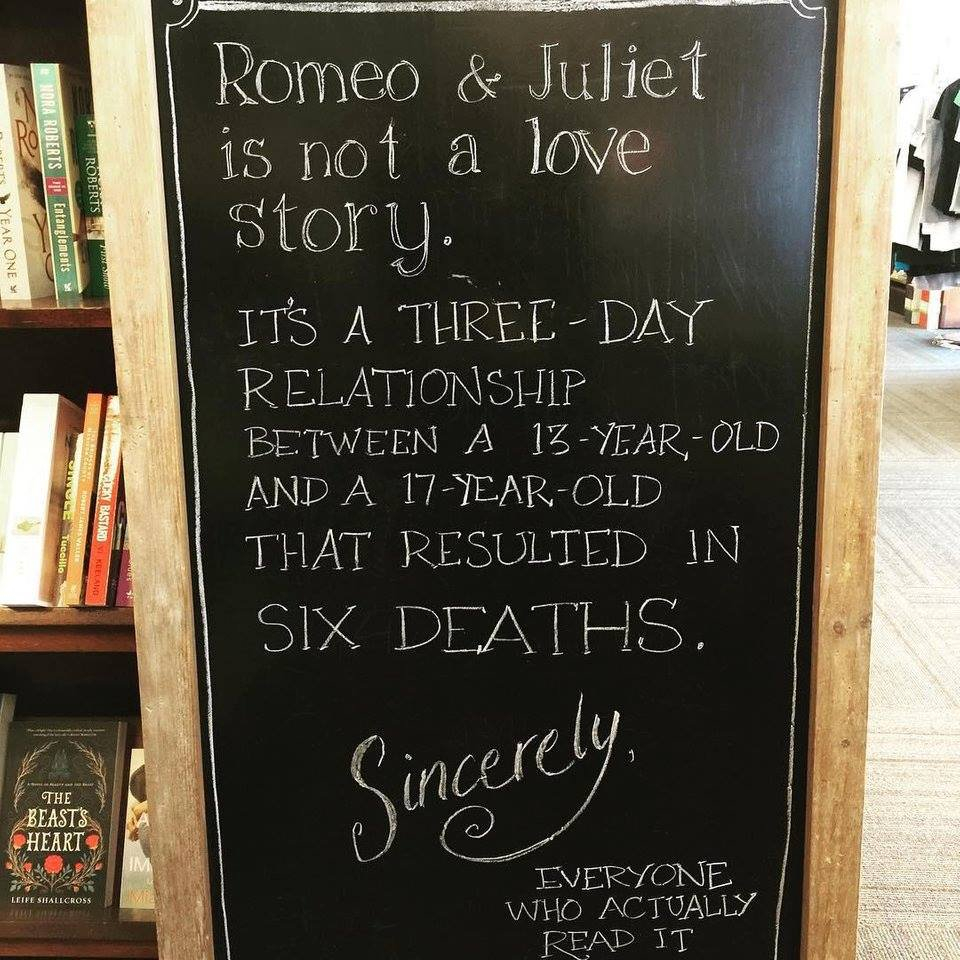 Romeo & Juliet
is not a love
story.
IT'S A THREE-DAY
RELATIONSHIP
BETWEEN A 13-YEAR-OLD
AND A 17-YEAR-OLD
THAT RESULTED IN
SIX DEATHS.
Sincerely,
EVERYONE
WHO ACTUALLY
READ IT
YEAR ONE
NORA ROBERTS
Entanglements
ROBERTS
Tuccillo
LUCKY BASTARD
THE
BEAST'S
HEART
LEIFE SHALLCROSS